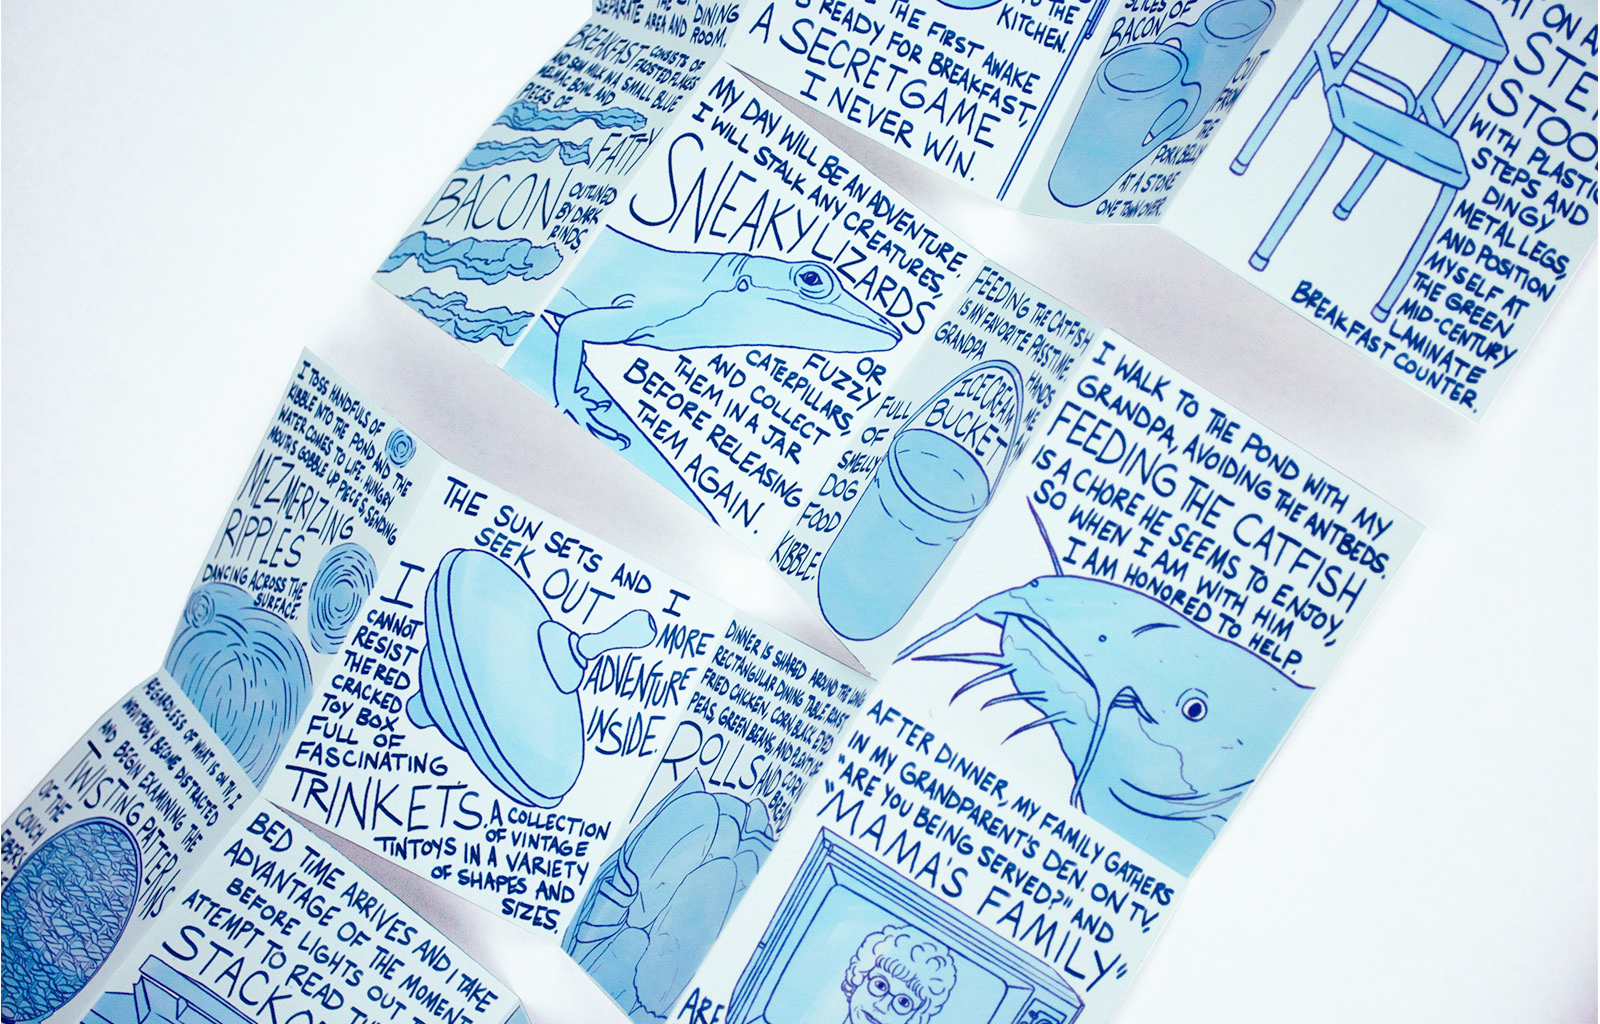 SEPARATE AREA AND ROOM.
BREAKFAST CONSISTS OF
FROSTED FLAKES
AND SKIM MILK IN A SMALL BLUE
MELMAC BOWL AND
PIECES OF
FATTY
BACON
OUTLINED
BY DARK
RINDS.
KITCHEN.
THE FIRST AWAKE
READY FOR BREAKFAST,
A SECRET GAME
I NEVER WIN.
SLICES OF
BACON
CUT
FROM
THE
PORK BELLY
AT A STORE
ONE TOWN OVER.
ON A
STEP
STOOL
WITH PLASTIC
STEPS AND
DINGY
METAL LEGS,
AND POSITION
MYSELF AT
THE GREEN
MID-CENTURY
LAMINATE
BREAKFAST COUNTER.
MY DAY WILL BE AN ADVENTURE.
I WILL STALK ANY CREATURES,
SNEAKY LIZARDS
OR
FUZZY
CATERPILLARS,
AND COLLECT
THEM IN A JAR
BEFORE RELEASING
THEM AGAIN.
FEEDING THE CATFISH
IS MY FAVORITE PASSTIME.
GRANDPA
HANDS
ME
AN
ICECREAM
BUCKET
FULL
OF
SMELLY
DOG
FOOD
KIBBLE.
I WALK TO THE POND WITH MY
GRANDPA, AVOIDING THE ANTBEDS.
FEEDING THE CATFISH
IS A CHORE HE SEEMS TO ENJOY,
SO WHEN I AM WITH HIM
I AM HONORED TO HELP.
I TOSS HANDFULS OF
KIBBLE INTO THE POND AND THE
WATER COMES TO LIFE. HUNGRY
MOUTHS GOBBLE UP PIECES, SENDING
MEZMERIZING
RIPPLES
DANCING ACROSS THE
SURFACE.
THE SUN SETS AND I
SEEK OUT
MORE
ADVENTURE
INSIDE.
I
CANNOT
RESIST
THE RED
CRACKED
TOY BOX
FULL OF
FASCINATING
TRINKETS.
A COLLECTION
OF VINTAGE
TIN TOYS IN A VARIETY
OF SHAPES AND
SIZES.
DINNER IS SHARED AROUND THE LONG
RECTANGULAR DINING TABLE. ROAST,
FRIED CHICKEN, CORN, BLACK EYED
PEAS, GREEN BEANS, AND PLENTY OF
ROLLS AND CORN
BREAD
AFTER DINNER, MY FAMILY GATHERS
IN MY GRANDPARENT'S DEN. ON TV,
"ARE YOU BEING SERVED?" AND
"MAMA'S FAMILY"
ARE
REGARDLESS OF WHAT IS ON TV, I
INEVITABLY BECOME DISTRACTED
AND BEGIN EXAMINING THE
TWISTING PATTERNS
OF THE
COUCH
BED TIME ARRIVES AND I TAKE
ADVANTAGE OF THE MOMENT
BEFORE LIGHTS OUT
ATTEMPT TO READ
STACK